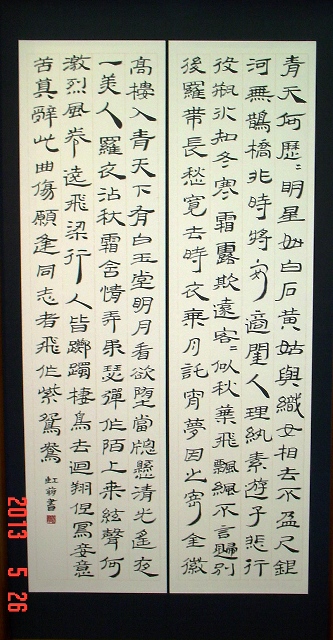 青天何歷〻明星如白石黃姑與織女相去不盈尺銀
河無鵲橋非時將安適閨人理紈素遊子悲行
役瓶冰知冬寒霜露欺遠客〻似秋葉飛飄颻不言歸別
後羅帶長愁寬去時衣乘月託宵夢因之寄金徽
高樓入青天下有白玉堂明月看欲墮當牕懸清光遙夜
一美人羅衣沾秋霜含情弄柔瑟彈作陌上桑絃聲何
激烈風卷遶飛梁行人皆躑躅棲鳥去迴翔但寫妾意
苦莫辭此曲傷願逢同志者飛作紫鴛鴦
虹 書
2013 5 26